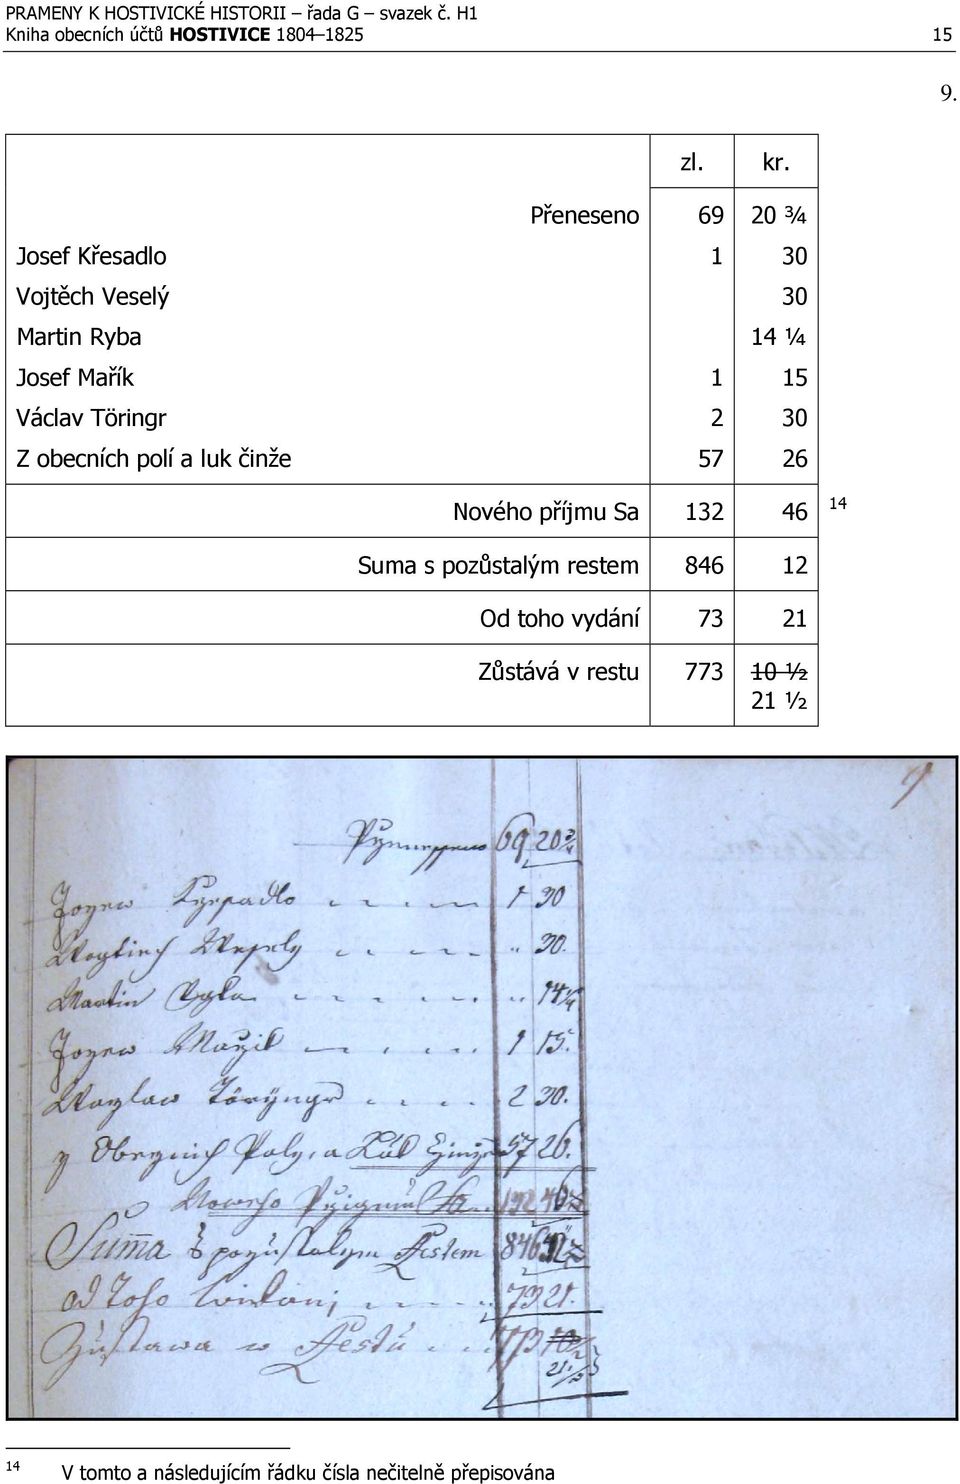 PRAMENY K HOSTIVICKÉ HISTORII – řada G – svazek č. H1
Kniha obecních účtů HOSTIVICE 1804–1825 15
9.
zl. kr.
Přeneseno 69 20 ¾
Josef Křesadlo 1 30
Vojtěch Veselý 30
Martin Ryba 14 ¼
Josef Mařík 1 15
Václav Töringr 2 30
Z obecních polí a luk činže 57 26
Nového příjmu Sa 132 46 14
Suma s pozůstalým restem 846 12
Od toho vydání 73 21
Zůstává v restu 773 10 ½
21 ½
9
Przenesseno 69 20 3/4
Jozew Krzesadlo 1 30
Wogtiech Wesely " 30.
Martin Ryba " 14 1/4
Jozew Marzik 1 15.
Waczlaw Töryngr 2 30.
z Obeznich Poly, a Luk Czinze 57 26.
Noweho Przigmu Sa
Suma s pozustalym Restem 846
od Toho widani 73 21.
Zustawa w Restu 773 10 1/2
21 1/2
14 V tomto a následujícím řádku čísla nečitelně přepisována